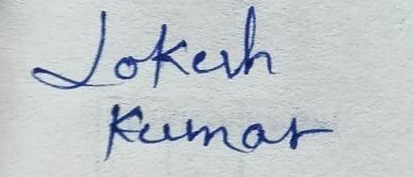 Lokesh
Kumar